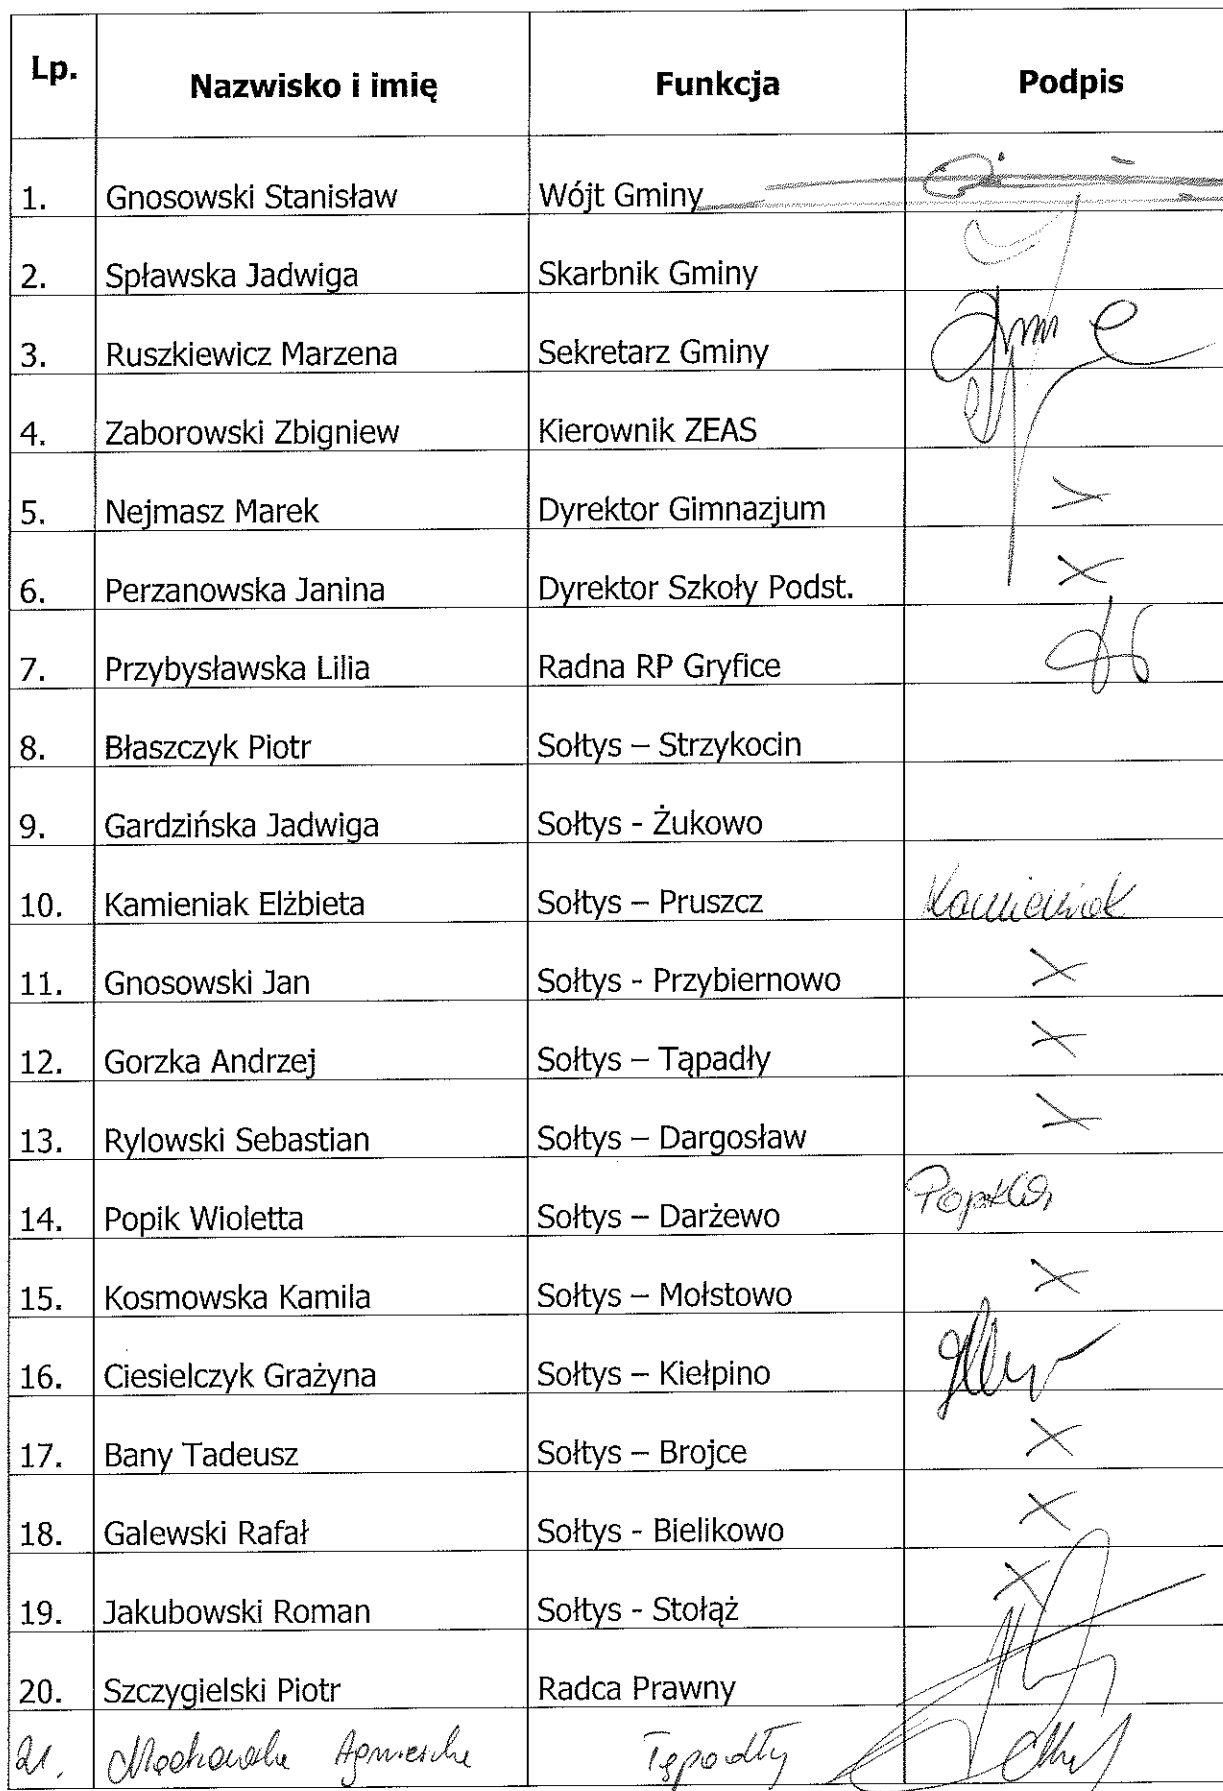 Lp. Nazwisko i imię Funkcja Podpis
1. Gnosowski Stanisław Wójt Gminy
2. Spławska Jadwiga Skarbnik Gminy
3. Ruszkiewicz Marzena Sekretarz Gminy
4. Zaborowski Zbigniew Kierownik ZEAS
5. Nejmasz Marek Dyrektor Gimnazjum
6. Perzanowska Janina Dyrektor Szkoły Podst. X
7. Przybysławska Lilia Radna RP Gryfice
8. Błaszczyk Piotr Sołtys – Strzykocin
9. Gardzińska Jadwiga Sołtys - Żukowo
10. Kamieniak Elżbieta Sołtys – Pruszcz Kamieniak
11. Gnosowski Jan Sołtys - Przybiernowo X
12. Gorzka Andrzej Sołtys – Tąpadły X
13. Rylowski Sebastian Sołtys – Dargosław X
14. Popik Wioletta Sołtys – Darżewo
15. Kosmowska Kamila Sołtys – Mołstowo X
16. Ciesielczyk Grażyna Sołtys – Kiełpino
17. Bany Tadeusz Sołtys – Brojce X
18. Galewski Rafał Sołtys - Bielikowo X
19. Jakubowski Roman Sołtys - Stołąż X
20. Szczygielski Piotr Radca Prawny
21. Agnieszka Tąpadły